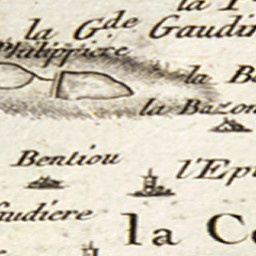 la P
la G.de Gaudin
Philippiere
la B
la Bazon
Bentiou
l'Ep
audiere
la C